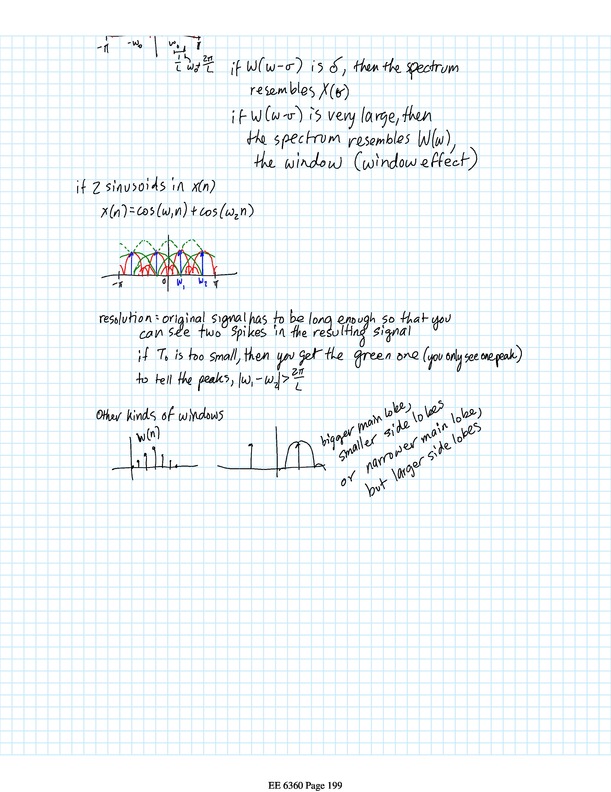 -π -w₀ w₀ π
1/L w₀+2π/L
if W(w-σ) is δ, then the spectrum
resembles X(σ)
if W(w-σ) is very large, then
the spectrum resembles W(w),
the window (window effect)
if 2 sinusoids in x(n)
x(n)=cos(w₁n)+cos(w₂n)
-π 0 w₁ w₂ π
resolution = original signal has to be long enough so that you
can see two spikes in the resulting signal
if T₀ is too small, then you get the green one (you only see one peak)
to tell the peaks, |w₁-w₂|>2π/L
Other kinds of windows
w(n)
bigger main lobe,
smaller side lobes
or narrower main lobe,
but larger side lobes
EE 6360 Page 199